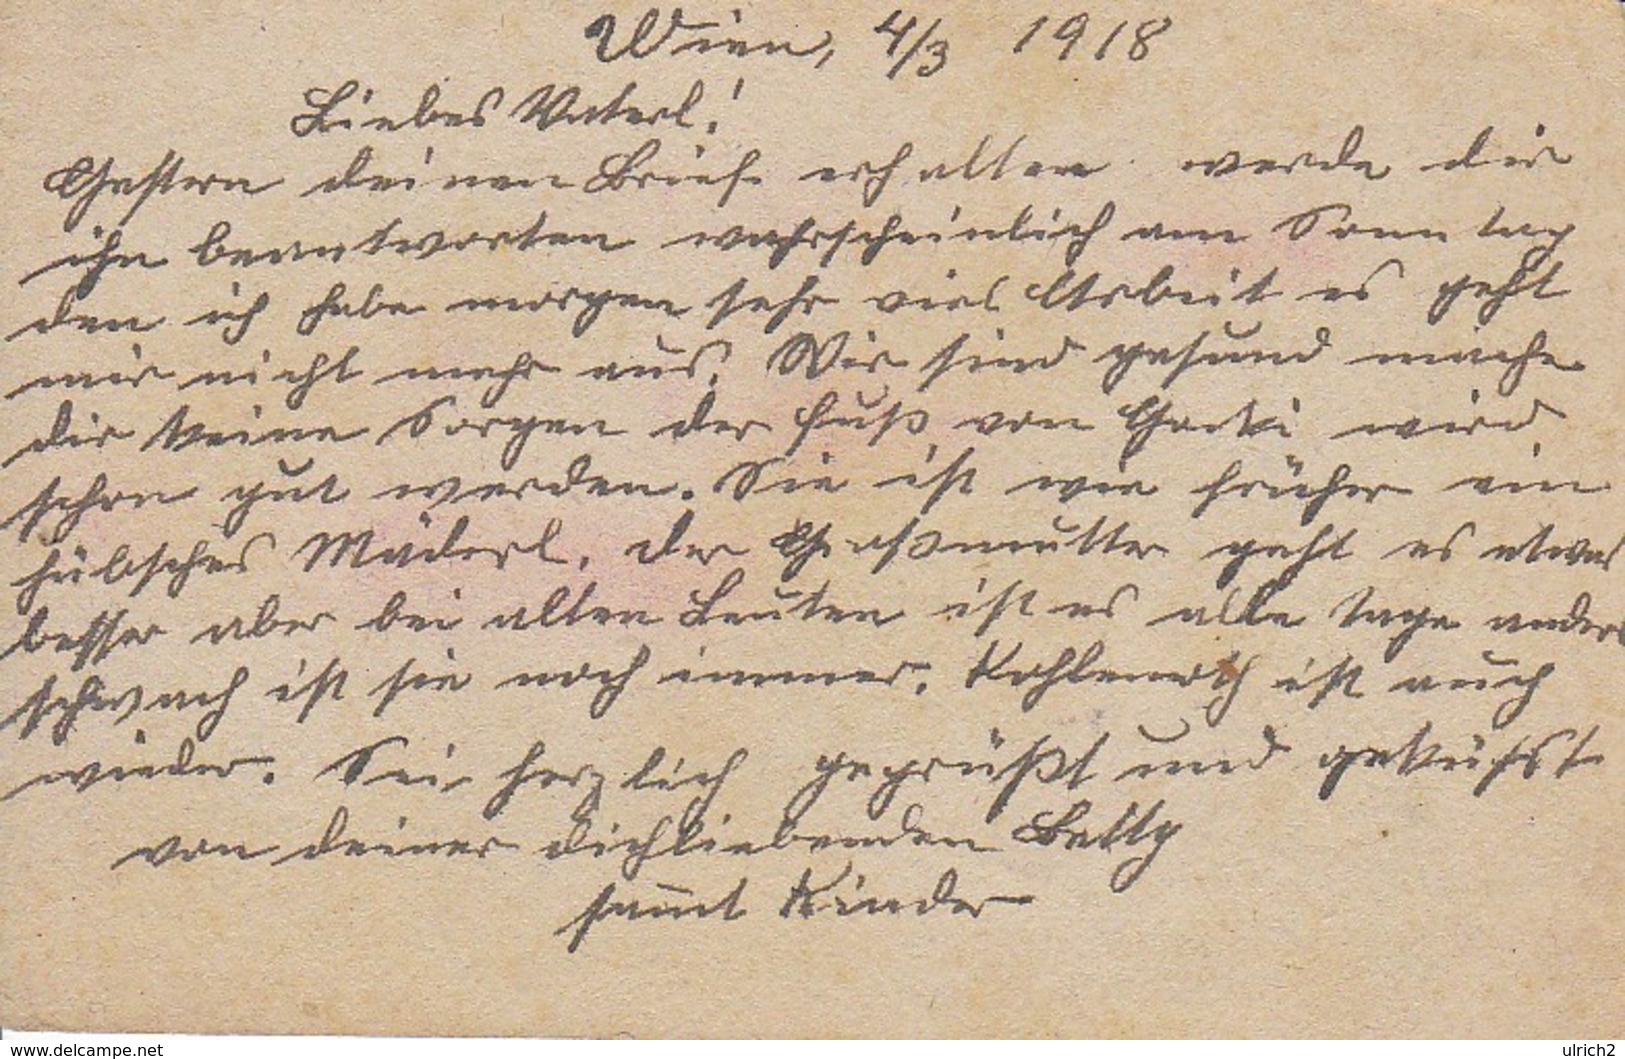 Wien, 4/3 1918
Liebes Vaterl!
Gestern deinen Brief erhalten werde dir
ihn beantworten wahrscheinlich am Sonntag
den ich habe morgen sehr viel Arbeit es geht
mir nicht mehr aus. Wir sind gesund mache
dir keine Sorgen der Fuß von Gocki wird
schon gut werden. Sie ist wie früher ein
hübsches Mäderl, der Großmutter geht es etwas
besser aber bei alten Leuten ist es alle Tage anders
schwach ist sie noch immer. Kohlennoth ist auch
wieder. Sei herzlich gegrüßt und geküßt
von deiner dichliebenden Betty
samt Kinder
www.delcampe.net
ulrich2